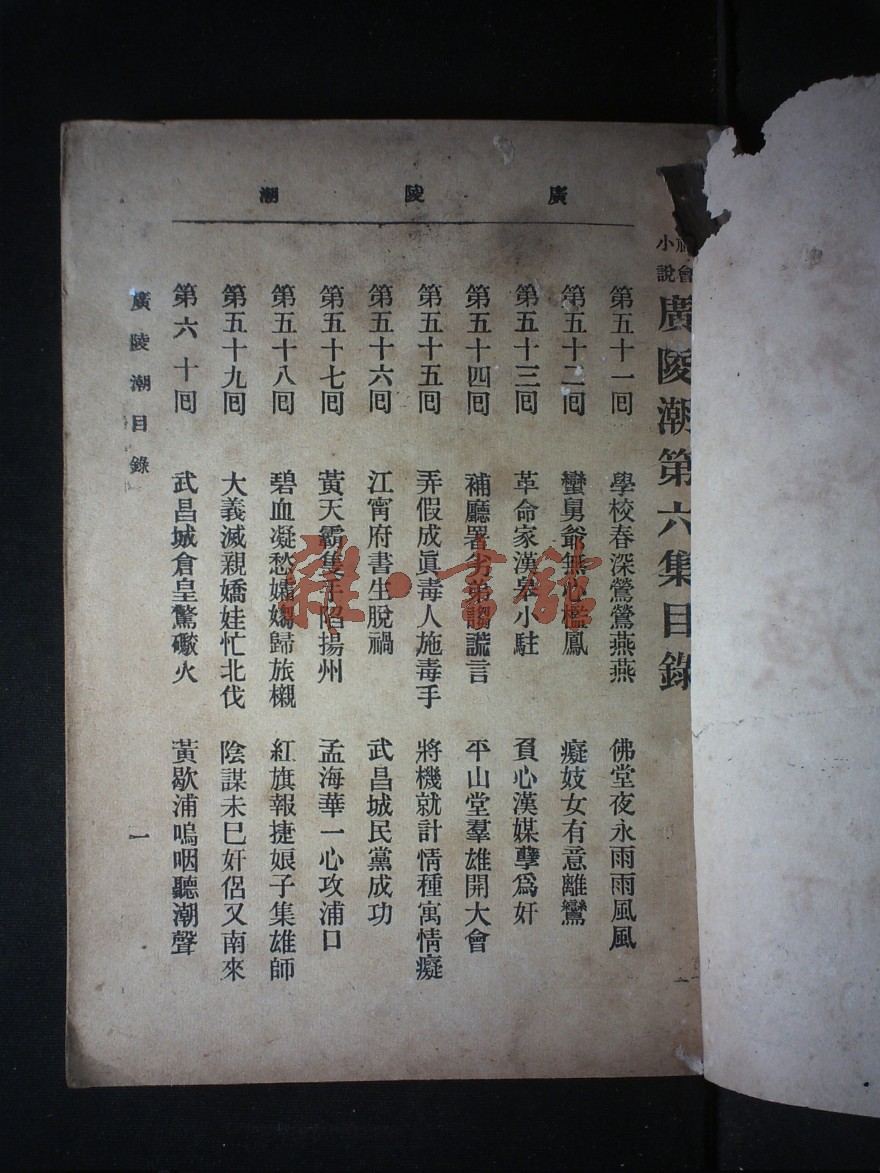 廣陵潮
小說 社會 廣陵潮第六集目錄
第五十一囘 學校春深鶯鶯燕燕 佛堂夜永雨雨風風
第五十二囘 蠻舅爺無心檻鳳 癡妓女有意離鸞
第五十三囘 革命家漢皋小駐 負心漢媒孽爲奸
第五十四囘 補廳署劣弟謅謊言 平山堂羣雄開大會
第五十五囘 弄假成眞毒人施毒手 將機就計情種寓情癡
第五十六囘 江甯府書生脫禍 武昌城民黨成功
第五十七囘 黃天霸隻手陷揚州 孟海華一心攻浦口
第五十八囘 碧血凝愁孀嫋歸旅櫬 紅旗報捷娘子集雄師
第五十九囘 大義滅親嬌娃忙北伐 陰謀未已奸侶又南來
第六十囘 武昌城倉皇驚礮火 黃歇浦嗚咽聽潮聲
廣陵潮目錄
一
雜·書館